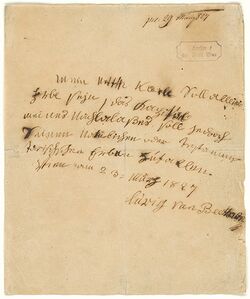 29 März 827
Mein Neffe Karle Soll alleini
Erbe seyn, das Kapital
meines Nachlalaßes soll jedoch
seinen natürlichen oder testamen
tarischen Erben zufallen.
Wien am 23 März 1827
luwig van Beethoven